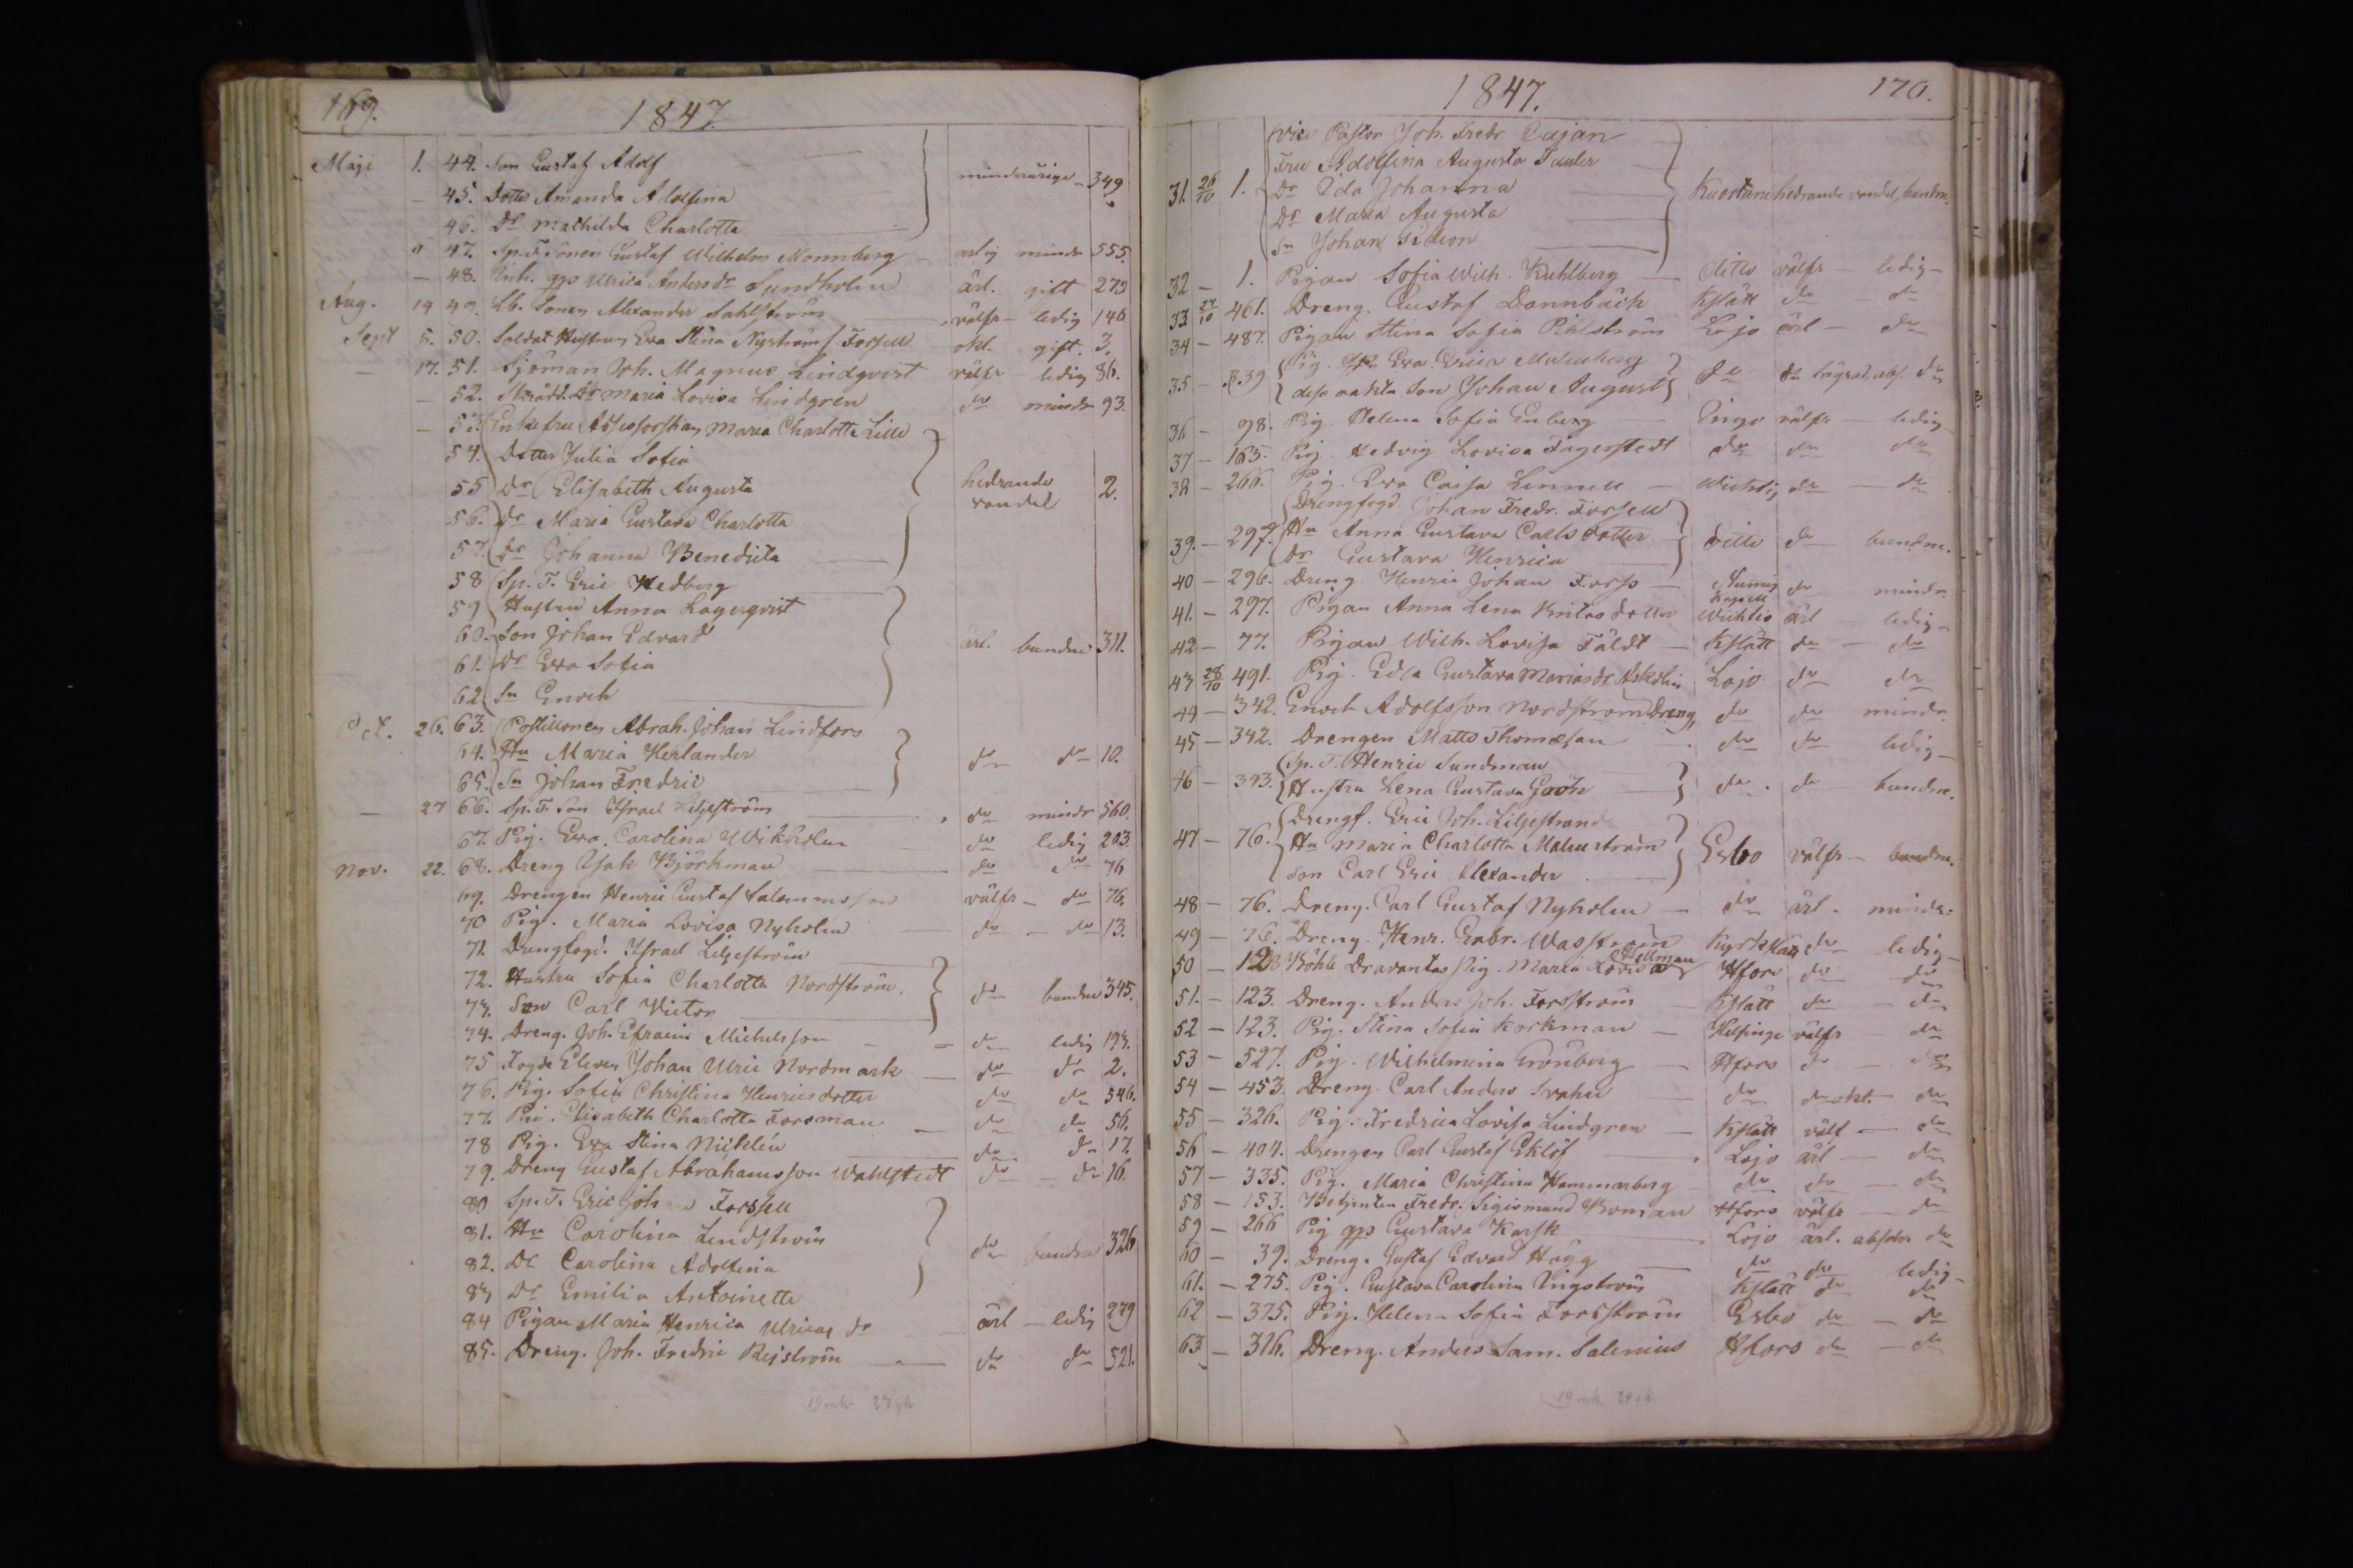 169.
1847.
Maji 1. 44. Son Gustaf Adolf
minderårige 349
— 45. Dotter Amanda Adolfina
46. Dr Mathilda Charlotta
47. Sp. T. Sonen Gustaf Wilhelm Monnberg — ärlig mindr 555.
— 48. Inh. gps Ulrica Andersdr Sundholm ärl. gift 273
Aug. 19 49. Sonen Alexander Sahlström välfr — ledig 146
Sept 5. 50. Soldat Hustrun Eva Stina Nyström f. Forssell okl. gift. 3.
— 17. 51. Sjöman Joh. Magnus Lindqvist välfr ledig 86.
— 52. Dr Maria Lovisa Lindgren do mindr 93.
— 53. Enkefru Maria Charlotta Lille
54. Dotter Julia Sofia
55 Dr Elisabeth Augusta
hedrande vandel 2.
56. dr Maria Gustava Charlotta
57. dr Johanna Benedicta
58 Sp. T. Eric Hedberg
59 Hustru Anna Lagerqvist
60. Son Johan Edvard
ärl. bundne 311.
61. Dr Eva Sofia
62 Sn Enoch
Oct. 26. 63. Postillonen Abrah. Johan Lindfors
64. Hu Maria Herlander
do do 10.
65. Sn Johan Fredric
— 27 66. Sp. T. Son Israel Liljeström do mindr 560.
67. Pig. Eva Carolina Wikholm do ledig 203.
Nov. 22. 68. Dreng Isak Björkman do do 76
69. Drengen Henric Gustaf Salomonsson välfr — do 76.
70 Pig. Maria Lovisa Nyholm do — do 13.
71. Drengfogd. Israel Liljeström
72. Hustru Sofia Charlotta Nordström.
do bundne 345.
73. Son Carl Victor
74. Dreng. Joh. Efraim Michelsson do ledig 193.
75 Fogde Eleven Johan Ulric Nordmark — do do 2.
76. Pig. Sofia Christina Henricsdotter do do 546.
77. Pig. Elisabeth Charlotta Forsman — do do 56.
78 Pig. Eva Stina Nicklén do do 17.
79. Dreng Gustaf Abrahamsson Wahlstedt do — do 16.
80 Sp. T. Eric Johan Forssell
81. Hu Carolina Lindström
do bundne 326
82. Dr Carolina Adolfina
83 Dr Emilia Antoinette
84 Pigan Maria Henrica Ulricas dr ärl — ledig 279
85. Dreng. Joh. Fredric Rejström do do 521.
1847.
170.
vice Pastor Joh. Fredr. Dajan
Fru Adolfina Augusta Tauler
31. 26/10 1. Dr Ida Johanna
hedrande vandel, bundne.
Dr Maria Augusta
Sn Johan Sidion
32 — 1. Pigan Sofia Wilh. Kuhlberg — ditto välfr — ledig —
33 27/10 461. Dreng. Gustaf Dannbäck Kslätt do — do
34 — 487. Pigan Stina Sofia Pihlström Lojo ärl — do
35 — Pig. Eva Erica Malmberg
dess oäkta Son Johan August
36 — 98. Pig. Helena Sofia Enberg Ingo välfr — ledig
37 — 165. Pig. Hedvig Lovisa Fagerstedt do do do
38 — 266. Pig. Eva Caisa Linnell — Wichtis do — do
Drengfogd. Johan Fredr. Forssell
39. — 297. Hu Anna Gustava Carlsdotter ditto do bundne.
Dr Gustava Henrica
40 — 296. Dreng. Henric Johan Forss — Nummis Kapell do mindr.
41. — 297. Pigan Anna Lena Knutsdotter Wichtis ärl — ledig —
42 — 77. Pigan Wilh. Lovisa Fäldt — Kslätt do — do
43 28/10 491. Pig. Edla Gustava Mariasdr Askolin Lojo do do
44 — 342. Enoch Adolfsson Nordström Dreng do do mindr.
45 — 342. Drengen Matts Thomasson do do ledig —
Sp. T. Henric Sundman
46 — 343. Hustru Lena Gustava Gröön do. do bundne.
Drengf. Eric Joh. Liljestrand
47 — 76. Hu Maria Charlotta Malmström Esbo välfr — bundne.
Son Carl Eric Alexander
48 — 76. Dreng. Carl Gustaf Nyholm — do ärl. mindr.
49 — 76. Dreng. Henr. Gabr. Wasström Kyrkslätt do ledig —
Hellman
50 — 123 Pig. Maria Lovisa Hfors do do
51. — 123. Dreng. Anders Joh. Forsström — Kslätt do — do
52 — 123. Pig. Stina Sofia Korkman — Helsinge välfr do
53 — 527. Pig. Wilhelmina Grönberg — Hfors do — do
54 — 453. Dreng. Carl Anders Svahn do do okt. — do
55 — 326. Pig. Fredrica Lovisa Lindgren — Kslätt välf — do
56 — 404. Drengen Carl Gustaf Eklöf Lojo ärl — do
57 — 335. Pig. Maria Christina Hammarberg do do — do
58 — 153. Betjenten Fredr. Sigismund Boman Hfors välfr — do
59 — 266 Pig gps Gustava Karsk Lojo ärl. absolv. do
60 — 39. Dreng. Gustaf Edvard Hägg do do ledig —
61. — 275. Pig. Gustava Carolina Ingström Kslätt do do
62 — 375. Pig. Helena Sofia Forsström Esbo do — do
63 — 316. Dreng. Anders Sam. Salenius Hfors do — do